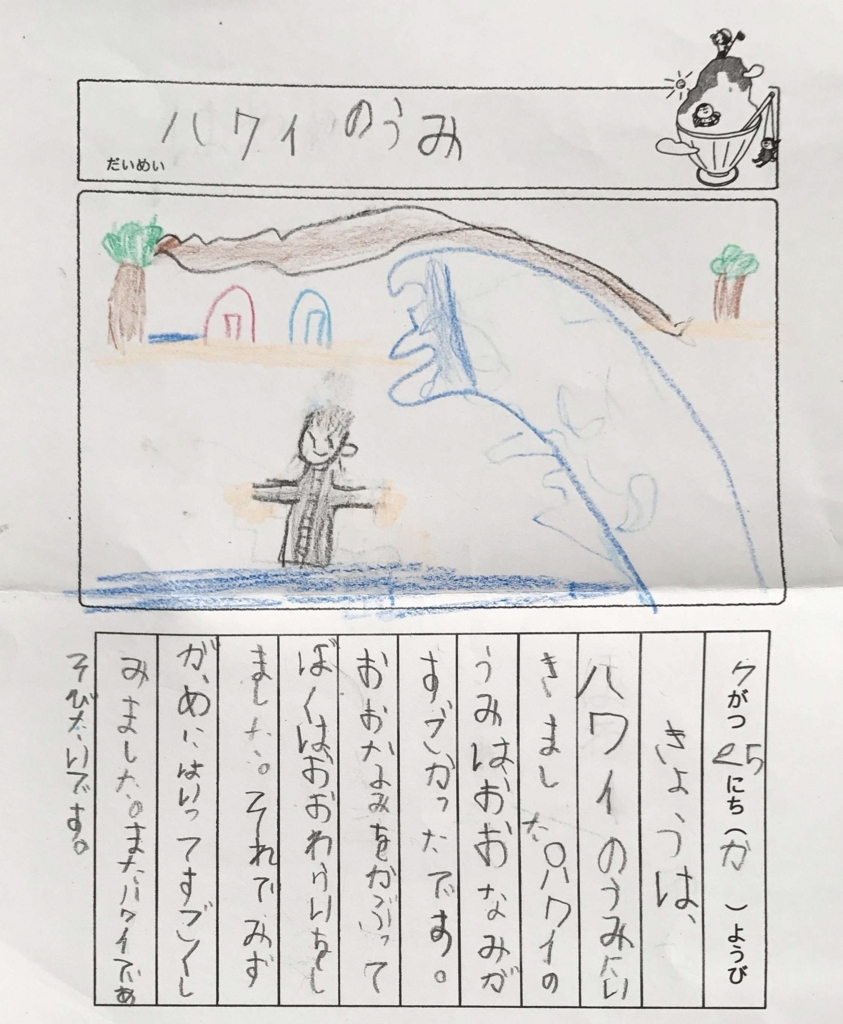 ハワイ のうみ
だいめい
7がつ 25にち（か）ようび
きょうは、
ハワイのうみにい
きました。ハワイの
うみは、おおなみが
すごかったです。
おおなみをかぶって
ぼくはおおわらいをし
ました。それでみず
が、めにはいってすごくし
みました。またハワイであ
そびたいです。